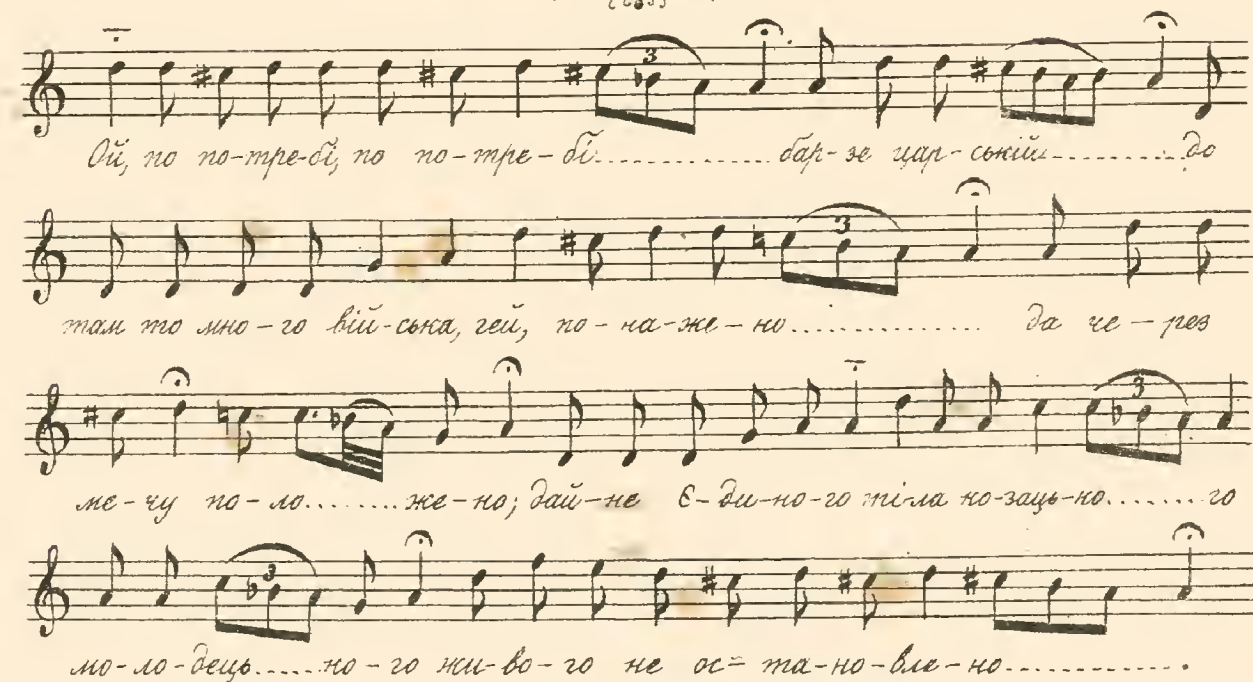 Ой, по по-тре-бі, по по-тре-бі............ бар-зе цар-ській........... до
там то мно-го вій-ська, гей, по-ка-же-но................ да че-рез
ме-чу по-ло........же-но; дай-не є-ди-но-го ті-ла ко-заць-ко.......го
мо-ло-дець.....ко-го жи-во-го не ос=та-но-вле-но............